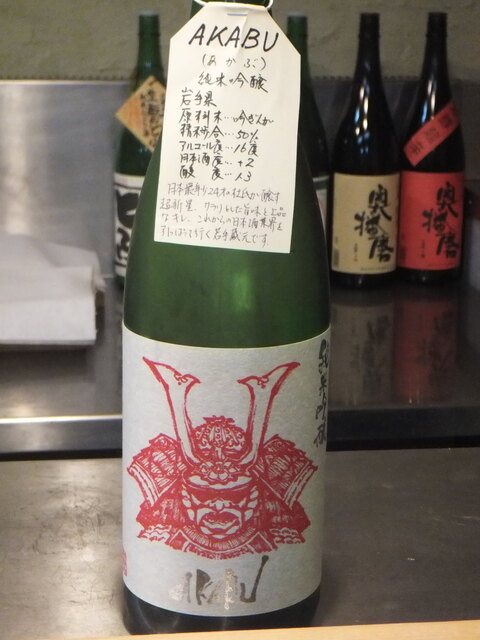 AKABU
(あかぶ)
純米吟醸
岩手県
原料米…吟ぎんが
精米歩合…50%
アルコール度…16度
日本酒度…+2
酸度…1.3
日本最年少24才の杜氏が醸す
超新星。サラリとした旨味と上品
なキレ。これからの日本酒業界を
引っぱって行く岩手蔵元です。
純米吟醸
AKABU
奥播磨
奥播磨